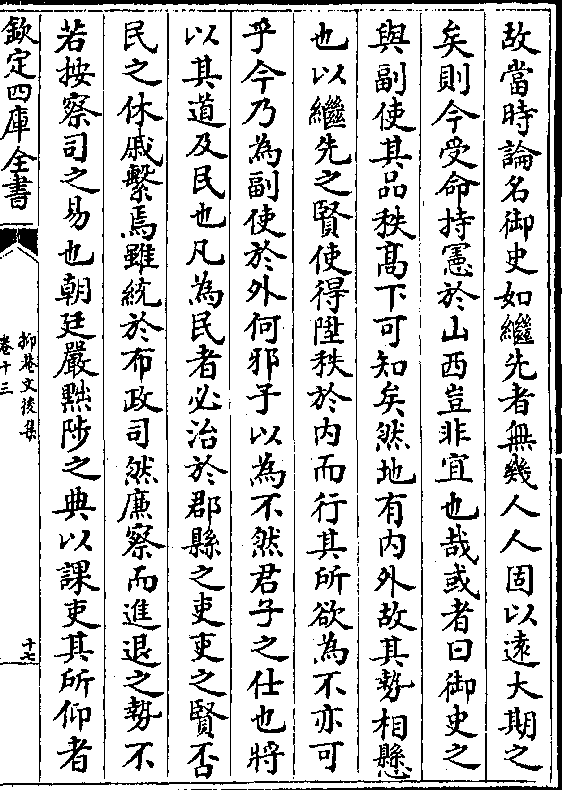 故當時論名御史如繼先者無幾人人固以逺大期之
矣則今受命持憲於山西豈非宜也哉或者曰御史之
與副使其品秩髙下可知矣然地有内外故其勢相懸
也以繼先之賢使得陞秩於内而行其所欲為不亦可
乎今乃為副使於外何邪予以為不然君子之仕也將
以其道及民也凡為民者必治於郡縣之吏吏之賢否
民之休戚繫焉雖統於布政司然亷察而進退之勢不
若按察司之易也朝廷嚴黜陟之典以課吏其所仰者
欽定四庫全書
抑菴文後集
卷十三
十七